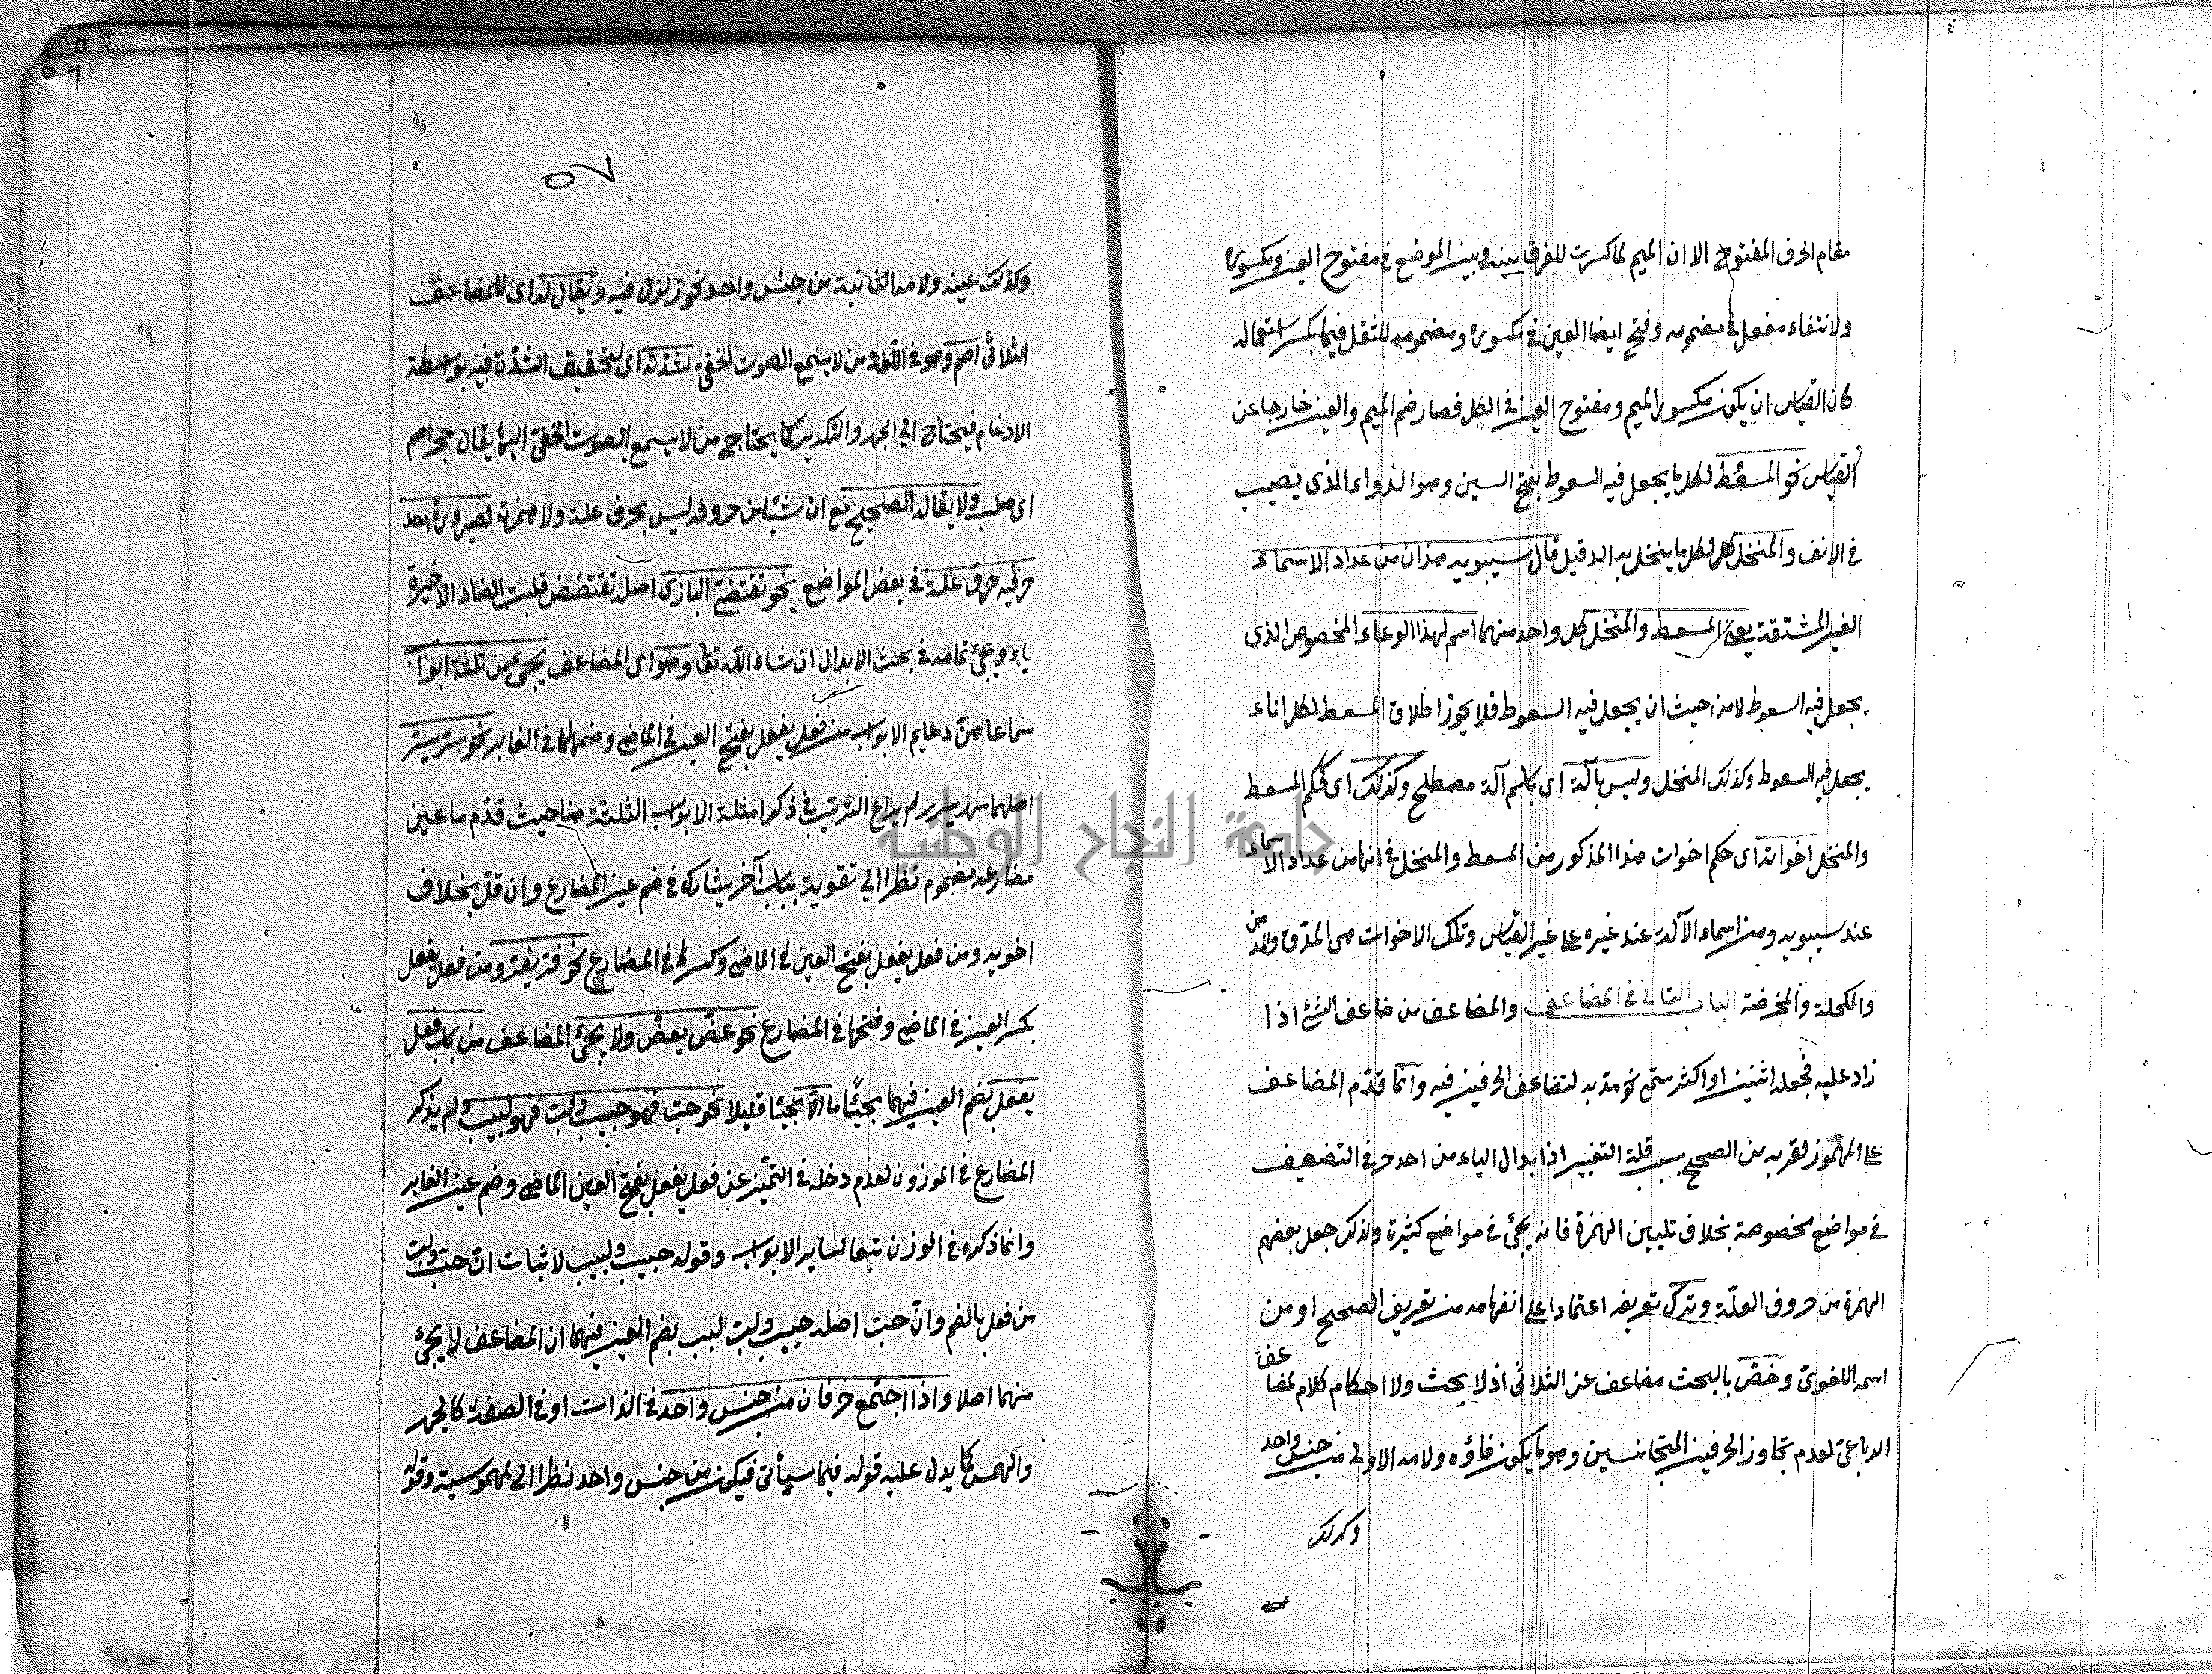 مقام الحرف المفتوح الا ان الميم لما كسرت للفرق بينه وبين الموضع في مفتوح العين ومكسوره
ولانتفاء مفعل في مضمومه وفتح ايضا العين في مكسوره ومضمومه للثقل فيما يكسر استعماله
كان القياس ان يكون مكسور الميم ومفتوح العين في الكل فصار ضم الميم والعين خارجا عن
القياس نحو المسعط لكل ما يجعل فيه السعوط بفتح السين وهو الدواء الذى يصيب
في الانف والمنخل لكل ما ينخل به الدقيق قال سيبويه هذان من عداد الاسماء
الغير المشتقة يعنى المسعط والمنخل كل واحد منهما اسم لهذا الوعاء المخصوص الذى
يجعل فيه السعوط لا من حيث ان يجعل فيه السعوط فلا يجوز اطلاق المسعط لكل اناء
يجعل فيه السعوط وكذلك المنخل وليس بآلة اى باسم آلة مصطلح وكذلك اى كحكم المسعط
والمنخل اخواته اى حكم اخوات هذا المذكور من المسعط والمنخل في انها من عداد الاسماء
عند سيبويه ومن اسماء الآلة عند غيره على غير القياس وتلك الاخوات هى المدق والمدهن
والمكحلة والمحرضة الباب الثاني في المضاعف والمضاعف من ضاعف الشئ اذا
زاد عليه فجعله اثنين او اكثر سمى نحو مد به لتضاعف الحرفين فيه وانما قدم المضاعف
على المهموز لقربه من الصحيح بسبب قلة التغيير اذ ابدال الياء من احد حرفي التضعيف
في مواضع مخصوصة بخلاف تليين الهمزة فانه يجئ في مواضع كثيرة ولذلك جعل بعضهم
الهمزة من حروف العلة وترك تعريفه اعتمادا على انفهامه من تعريف الصحيح او من
اسمه اللغوى وخص بالبحث مضاعف عن الثلاثى اذ لا بحث ولا احكام كلام لمضاعف
الرباعى لعدم تجاوز الحرفين المتجانسين وهو ما يكون فاؤه ولامه الاولى من جنس واحد
وكذلك
٥٧
وكذلك عينه ولامه الثانية من جنس واحد نحو زلزل فيه ويقال له اى للمضاعف
الثلاثى اصم وهو في اللغة من لا يسمع الصوت الخفى لشدته اى لتحقيق الشدة فيه بواسطة
الادغام فيحتاج الى الجهر والتكرير كما يحتاج من لا يسمع الصوت الخفى اليهما يقال حجر اصم
اى صلب ولا يقال له الصحيح مع ان شيئا من حروفه ليس بحرف علة ولا همزة لصيرورة احد
حرفيه حرف علة في بعض المواضع نحو تقضى البازى اصله تقضض قلبت الضاد الاخيرة
ياء ويجئ تمامه في بحث الابدال ان شاء الله تعا وهو اى المضاعف يجئ من ثلثة ابواب
سماعا من دعايم الابواب من فعل يفعل بفتح العين في الماضى وضمها في الغابر نحو سر يسر
اصلهما سرر يسرر لم يراع الترتيب في ذكر امثلة الابواب الثلثة هنا حيث قدم ما عين
مضارعه مضموم نظرا الى تقويته بباب آخر يشاركه في ضم عين المضارع وان قل بخلاف
اخويه ومن فعل يفعل بفتح العين في الماضى وكسرها في المضارع نحو فر يفر ومن فعل يفعل
بكسر العين في الماضى وفتحها في المضارع نحو عض يعض ولا يجئ المضاعف من باب فعل
يفعل بضم العين فيهما مجيئا ما الا مجيئا قليلا نحو حب فهو حبيب ولب فهو لبيب ولم يذكر
المضارع في الموزون لعدم دخله في التميز عن فعل يفعل بفتح العين الماضى وضم عين الغابر
وانما ذكره في الوزن تبعا لساير الابواب وقوله حبيب ولبيب لاثبات ان حب ولب
من فعل بالضم وان حب اصله حبب ولب لبب بضم العين فيهما ان المضاعف لا يجئ
منهما اصلا واذا اجتمع حرفان من جنس واحد في الذات او في الصفة كالجهر
والهمس كما يدل عليه قوله فيما سيأتى فيكون من جنس واحد نظرا الى المهموسية وقوله
جامعة النجاح الوطنية